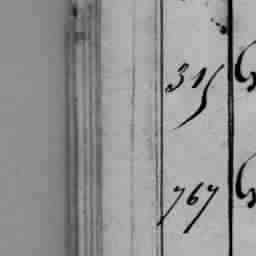 315
767